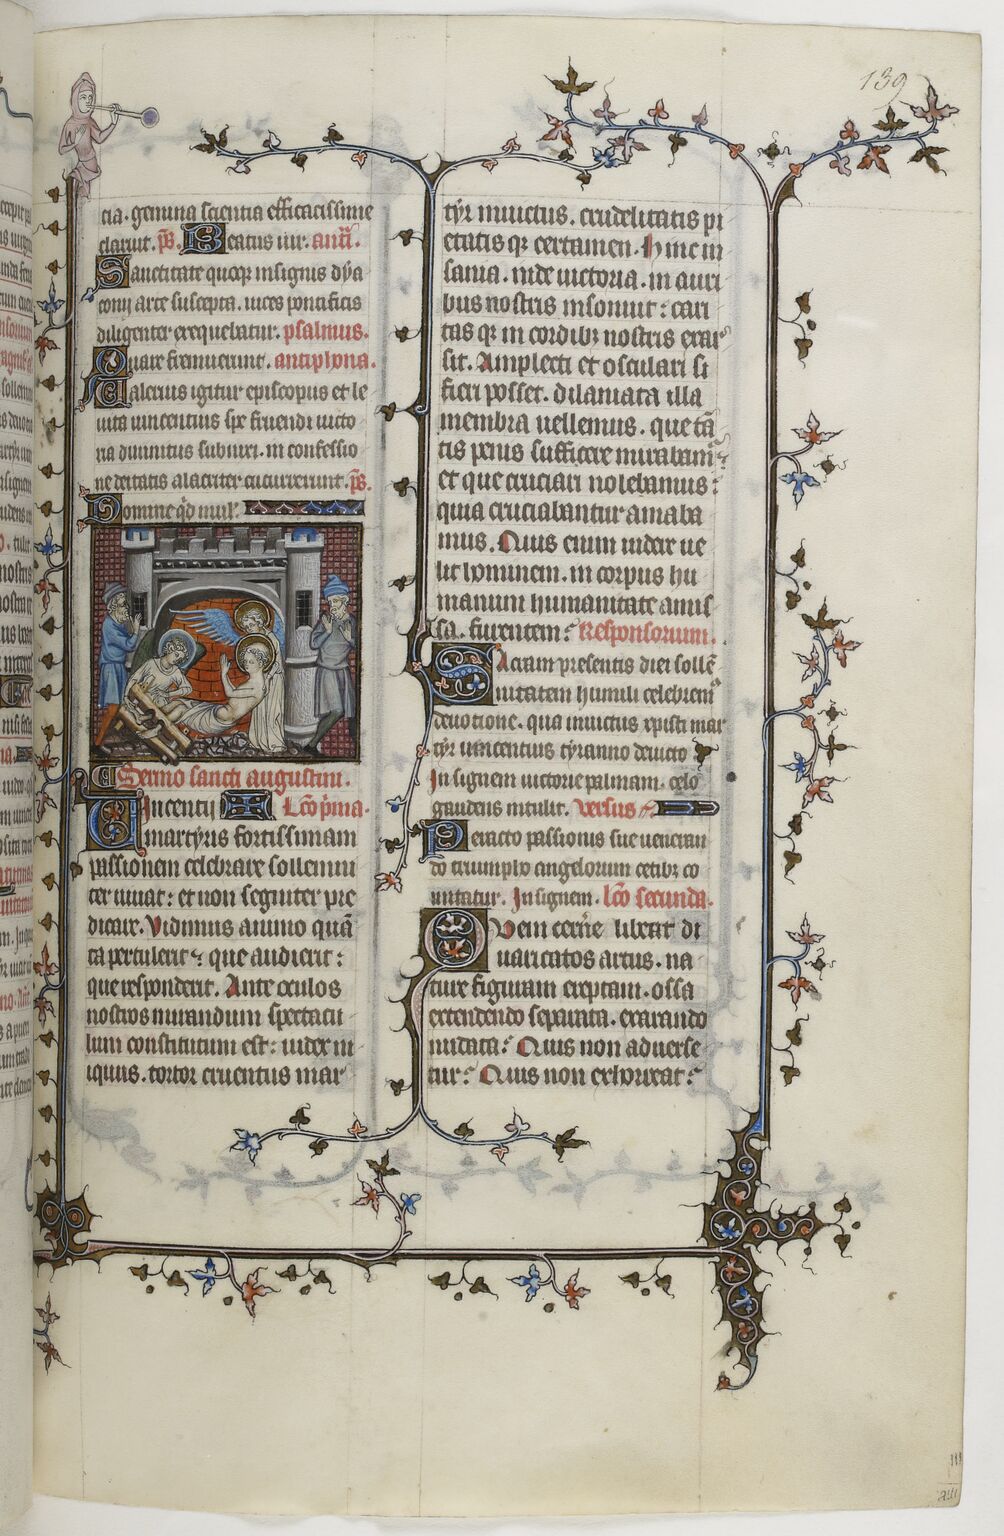 139
cia. genuina scientia efficacissime
claruit. ps. Beatus uir. ant.
Sanctitate quoque insignis dya
conij arce suscepta. uices pontificis
diligenter exequebatur. psalmus.
Quare fremuerunt. antiphona.
Ualerius igitur episcopus et le
uita uincentius spe fruendi uicto
ria diuinitus subnixi. in confessio
ne deitatis alacriter cucurrerunt. ps.
Domine qd mul.
Sermo sancti augustini.
Uincentij Lco pma.
martyris fortissimam
passionem celebrare sollemni
ter iuuat: et non segniter pre
dicare. Vidimus animo quā
ta pertulerit: que audierit:
que responderit. Ante oculos
nostros mirandum spectacu
lum constitutum est: iudex in
iquus. tortor cruentus mar
tyr inuictus. crudelitatis pi
etatis qz certamen. Hinc in
sania. inde uictoria. in auri
bus nostris insonuit: cari
tas qz in cordibz nostris exar
sit. Amplecti et osculari si
fieri posset. dilaniata illa
membra uellemus. que tā
tis penis sufficere mirabam
et que cruciari nolebamus:
quia cruciabantur amaba
mus. Quis enim uidere ue
lit hominem. in corpus hu
manum humanitate amis
sa. furentem? Responsorium.
Sacram presentis diei sollē
nitatem humili celebrem
deuotione. qua inuictus xpisti mar
tyr uincentius tyranno deuicto
Insignem uictorie palmam. celo
gaudens intulit. Versus
Peracto passionis sue ueneran
do triumpho angelorum cetibz co
mitatur. Insignem. lco secunda.
Quem cerne libeat di
uaricatos artus. na
ture figuram ereptam. ossa
extendendo separata. exarando
nudata? Quis non aduerse
tur? Quis non exhorreat?